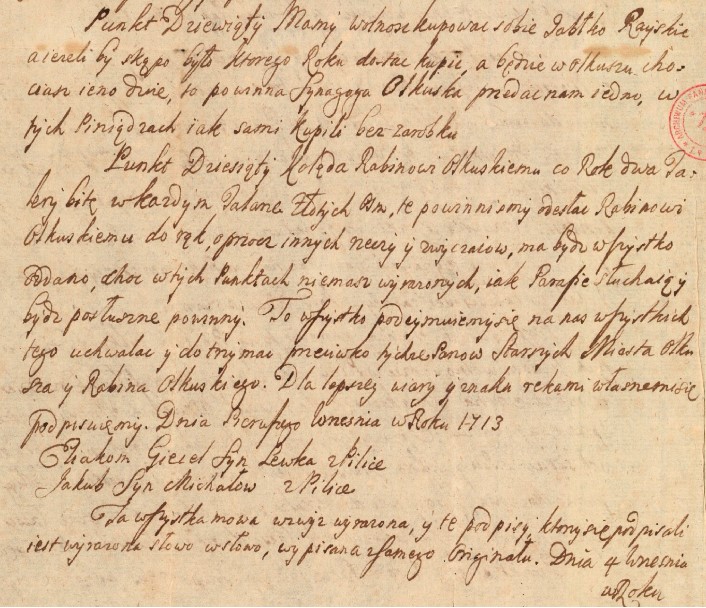 Punkt Dziewiąty Mamy wolnosc kupowac sobie Jabłko Rayskie
a iezeli by skąpo było ktorego Roku dostac kupic, a będzie w Olkuszu cho-
ciasz ieno dwie, to powinna Synagoga Olkuska przedac nam iedno, w
tych Piniądzach iak sami kupili bez zarobku
Punkt Dziesiąty Kolęda Rabinowi Olkuskiemu co Rok dwa Ta-
lery bite w kazdym Talarze Złotych Osm, te powinnismy odesłac Rabinowi
Olkuskiemu do rąk, oprocz innych rzeczy y zwyczaiow, ma bydz wszystko
oddano, choc w tych Punktach niemasz wyrazonych, iak Parafie słuchaią y
bydz posłuszne powinny. To wszystko podeymuiemy się na nas wszystkich
tego uchwalac y dotrzymac przeciwko tychze Panow Starszych Miasta Olku-
sza y Rabina Olkuskiego. Dla lepszey wiary y znaku rekami własnemi się
podpisuiemy. Dnia Wrzesnia w Roku 1713
Eliakom Giecel Syn Lewka z Pilice
Jakub Syn Michałow z Pilice
Ta wszystka mowa wzwyz wyrazona, y te podpisy, ktory się podpisali
iest wyrazona słowo w słowo, wypisana z samego Originału. Dnia 4 Wrzesnia
w Roku